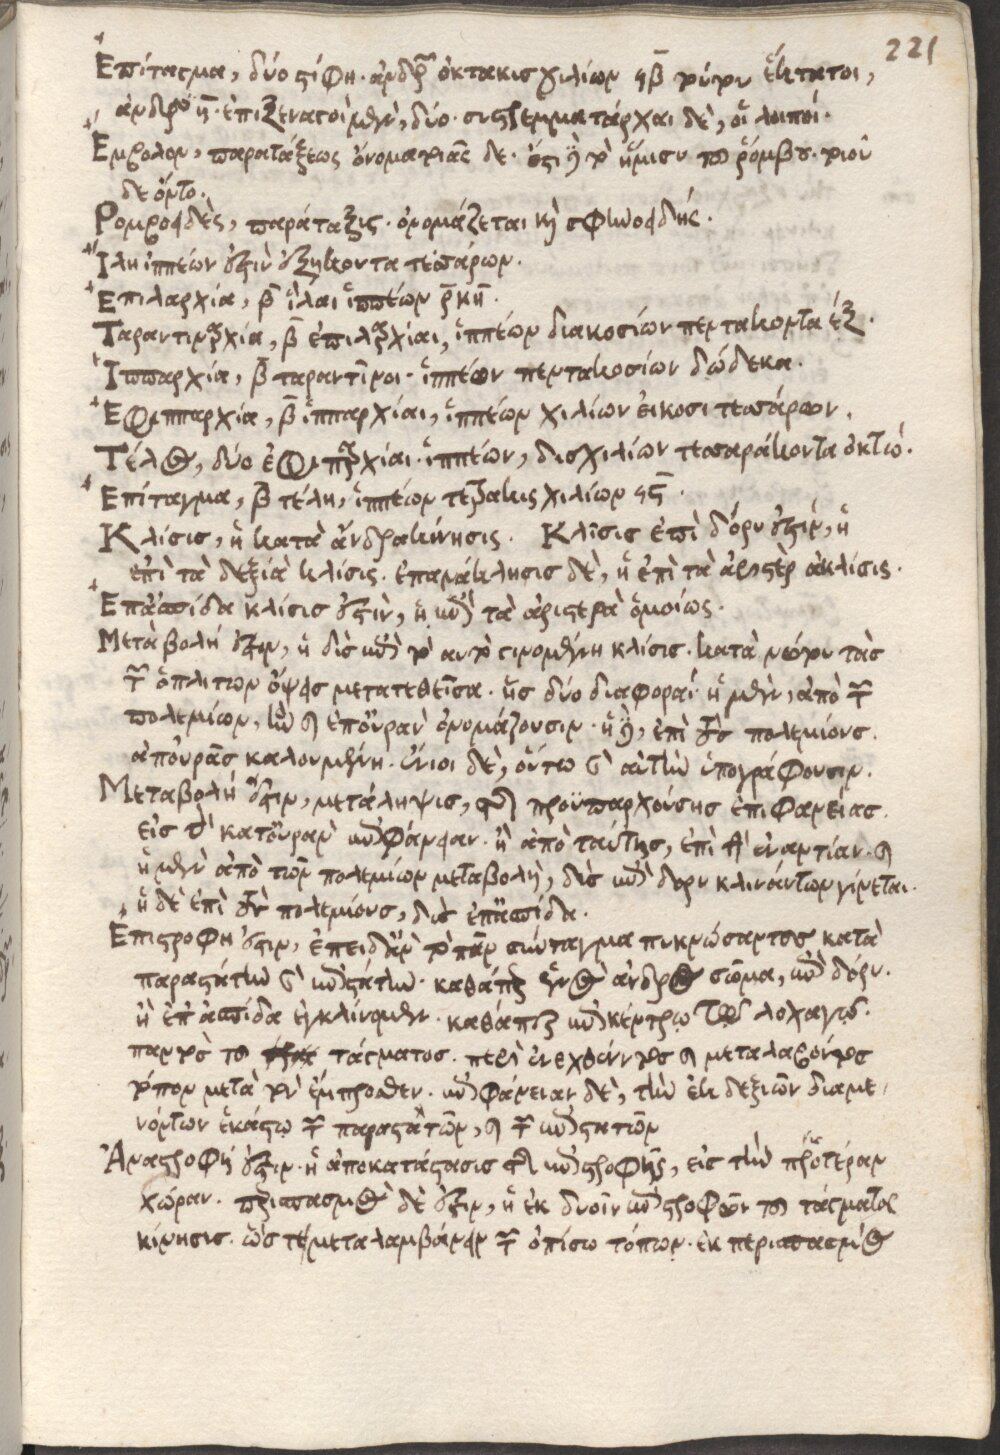 221
Ἐπίταγμα, δύο στίφη· ἀνδρῶν ὀκτακισχιλίων ϟβ γίνονται ἔκτατοι,
ἄνδρες η̄· ἐπιξεναγοὶ μὲν, δύο· συστεμματάρχαι δὲ, οἱ λοιποί.
Ἔμβολον, παρατάξεως ὄνομα ποιᾶς δέ· ἔστι γὰρ τὸ ἥμισυ τοῦ ῥόμβου· τριγώνου
δὲ ὄντος.
Ῥομβοειδὲς, παράταξις· ὀνομάζεται καὶ σφηνοειδής.
Ἴλη ἱππέων ἐστὶν ἑξήκοντα τεσσάρων.
Ἐπιλαρχία, β̄ ἴλαι ἱππέων ρ̄κη̄.
Ταραντιναρχία, β̄ ἐπιλαρχίαι, ἱππέων διακοσίων πεντακοντα ἕξ.
Ἱππαρχία, β̄ ταραντῖνοι· ἱππέων πεντακοσίων δώδεκα.
Ἐφιππαρχία, β̄ ἱππαρχίαι, ἱππέων χιλίων εἰκοσι τεσσάρων.
Τέλος, δύο ἐφιππαρχίαι· ἱππέων, δισχιλίων τεσσαράκοντα ὀκτώ.
Ἐπίταγμα, β̄ τέλη, ἱππέων τετρακισχιλίων ϟϛ̄.
Κλίσις, ἡ κατὰ ἄνδρα κίνησις. Κλίσις ἐπὶ δόρυ ἐστὶν, ἡ
ἐπὶ τὰ δεξιὰ κλίσις. ἐπανάκλησις δὲ, ἡ ἐπὶ τὰ ἀριστερὰ κλίσις.
Ἐπ' ἀσπίδα κλίσις ἐστὶν, ἡ ἐπὶ τὰ ἀριστερὰ ὁμοίως.
Μεταβολή ἐστιν, ἡ δὶς ἐπὶ τὸ αὐτὸ γινομένη κλίσις. κατὰ νώτου τὰς
τῶν ὁπλιτων ὄψεις μετατεθεῖσα. ἧς δύο διαφοραί· ἡ μὲν, ἀπὸ τῶν
πολεμίων, ἣν καὶ ἐπ' οὐρὰν ὀνομάζουσιν· ἡ δὲ, ἐπὶ τοὺς πολεμίους.
ἀπ' οὐρᾶς καλουμένη. ἔνιοι δὲ, οὕτω καὶ αὐτὴν ὑπογράφουσιν.
Μεταβολή ἐστιν, μετάληψις, τῆς προϋπαρχούσης ἐπιφανείας.
εἰς τὴν κατ' οὐρὰν ἐπιφάνειαν. ἢ ἀπὸ ταύτης, ἐπὶ τὴν ἐναντίαν. καὶ
ἡ μὲν ἀπὸ τῶν πολεμίων μεταβολὴ, δὶς ἐπὶ δορυ κλινάντων γίνεται.
ἡ δὲ ἐπὶ τοὺς πολεμίους, δὶς ἐπ' ἀσπίδα.
Ἐπιστροφή ἐστιν, ἐπειδὰν τὸ πᾶν σύνταγμα πυκνώσαντες κατὰ
παραστάτην καὶ ἐπιστάτην· καθάπερ ἑνὸς ἀνδρὸς σῶμα, ἐπὶ δόρυ.
ἢ ἐπ' ἀσπίδα ἐγκλίνωμεν. καθάπερ ἐπὶ κέντρῳ τῷ λοχαγῷ.
παντὸς τοῦ τάγματος. περιενεχθέντος καὶ μεταλαβόντος
τόπον μετὰ τὸν ἔμπροσθεν. ἐπιφάνειαν δὲ, τὴν ἐκ δεξιῶν διαμε-
νόντων ἑκάστῳ τῶν παραστατῶν, καὶ τῶν ἐπιστατῶν
Ἀναστροφή ἐστιν· ἡ ἀποκατάστασις τῆς ἐπιστροφῆς, εἰς τὴν προτέραν
χώραν. περισπασμὸς δέ ἐστιν, ἡ ἐκ δυοῖν ἐπιστροφῶν τοῦ τάγματος
κίνησις. ὥστε μεταλαμβάνειν τῶν ὀπίσω τόπων. ἐκπερισπασμὸς